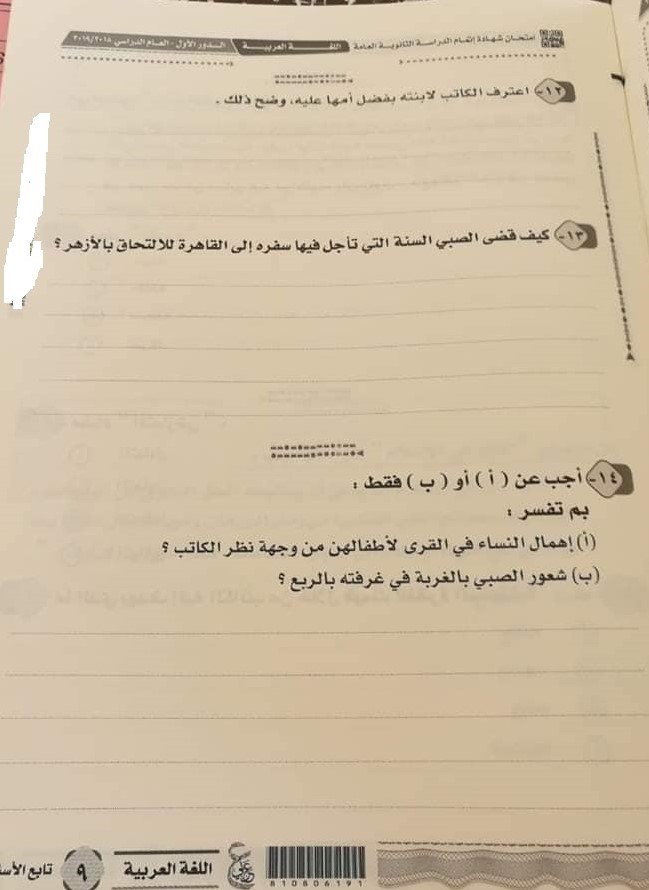 امتحان شهادة إتمام الدراسة الثانوية العامة اللغة العربية الدور الأول - العام الدراسي ٢٠١٩/٢٠١٨
١٢- اعترف الكاتب لابنته بفضل أمها عليه، وضح ذلك .
١٣- كيف قضى الصبي السنة التي تأجل فيها سفره إلى القاهرة للالتحاق بالأزهر ؟
١٤- أجب عن ( أ ) أو ( ب ) فقط :
بم تفسر :
(أ) إهمال النساء في القرى لأطفالهن من وجهة نظر الكاتب ؟
(ب) شعور الصبي بالغربة في غرفته بالربع ؟
810806191 اللغة العربية ٩ تابع الأسا